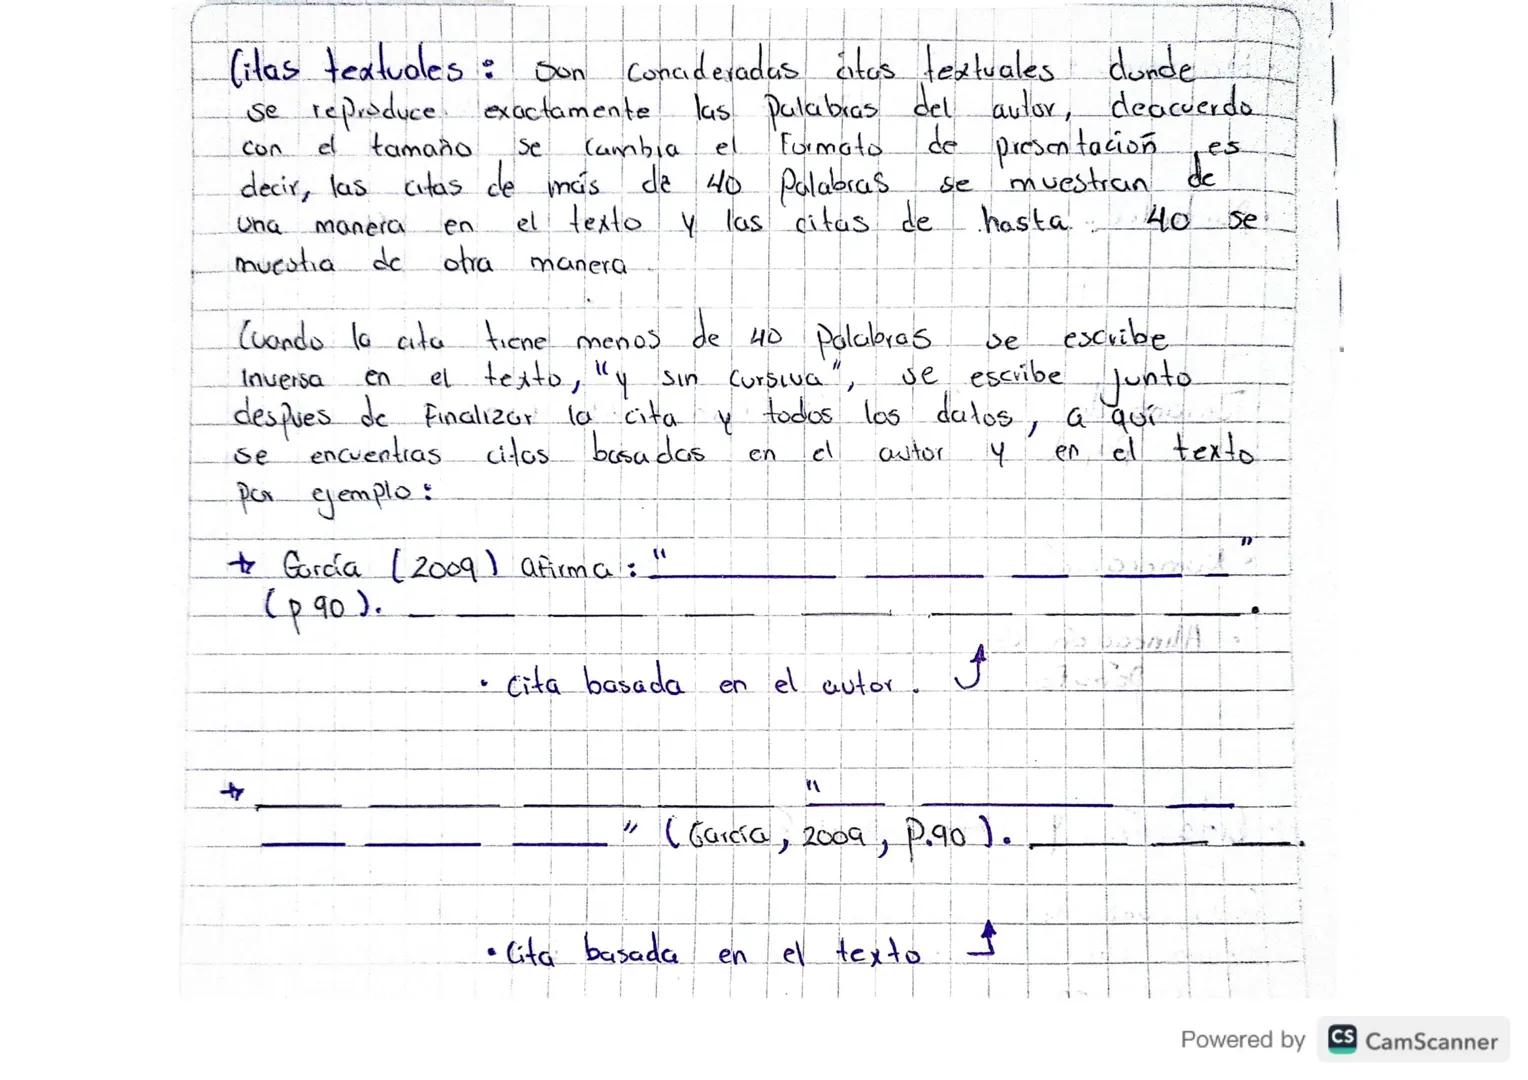 Citas textuales: son concideradas citas textuales donde
se reproduce exactamente las palabras del autor, deacuerdo
con el tamaño se cambia el formato de presentación, es
decir, las citas de más de 40 palabras se muestran de
una manera en el texto y las citas de hasta 40 se
muestra de otra manera
Cuando la cita tiene menos de 40 palabras se escribe
inversa en el texto, "y sin cursiva", se escribe junto
despues de finalizar la cita y todos los datos, a quí
se encuentras citas basadas en el autor y en el texto
por ejemplo:
García (2009) afirma: "                    "
(p 90).
• Cita basada en el autor.
"
" (García, 2009, P.90).
• Cita basada en el texto
Powered by CS CamScanner